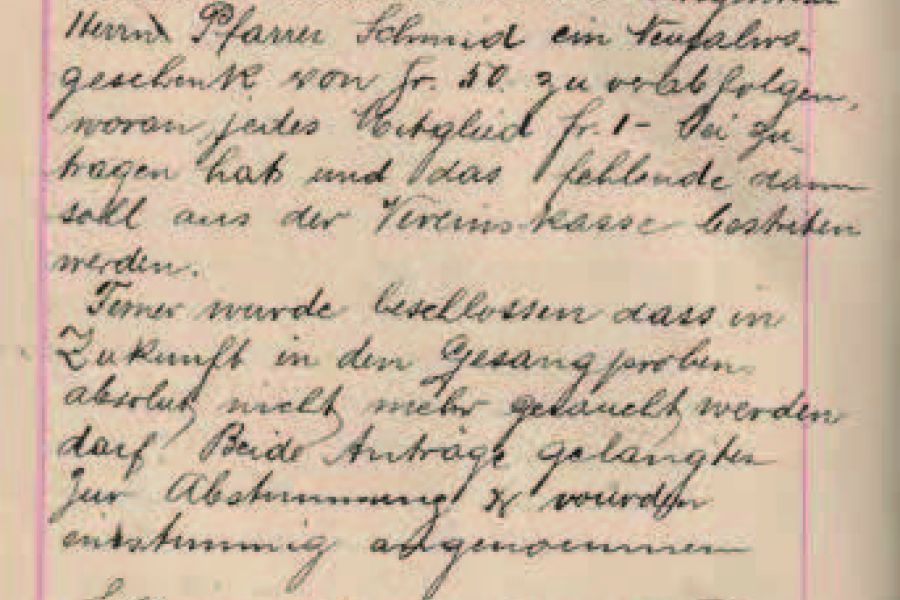 Herrn Pfarrer Schmid ein Neujahrs-
geschenk von Fr. 50. zu verabfolgen,
woran jedes Mitglied Fr. 1- bei zu-
tragen hat und das fehlende dann
soll aus der Vereinskasse bestritten
werden.
Ferner wurde beschlossen dass in
Zukunft in den Gesangproben
absolut nicht mehr geraucht werden
darf. Beide Anträge gelangten
zur Abstimmung & wurden
einstimmig angenommen